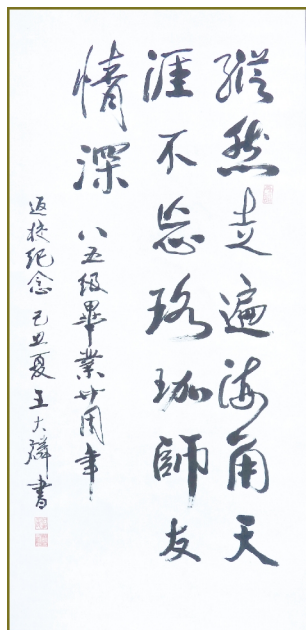 縱然走遍海角天
涯不忘珞珈師友
情深
八五級畢業廿周年
返校紀念 己丑夏 王大 書